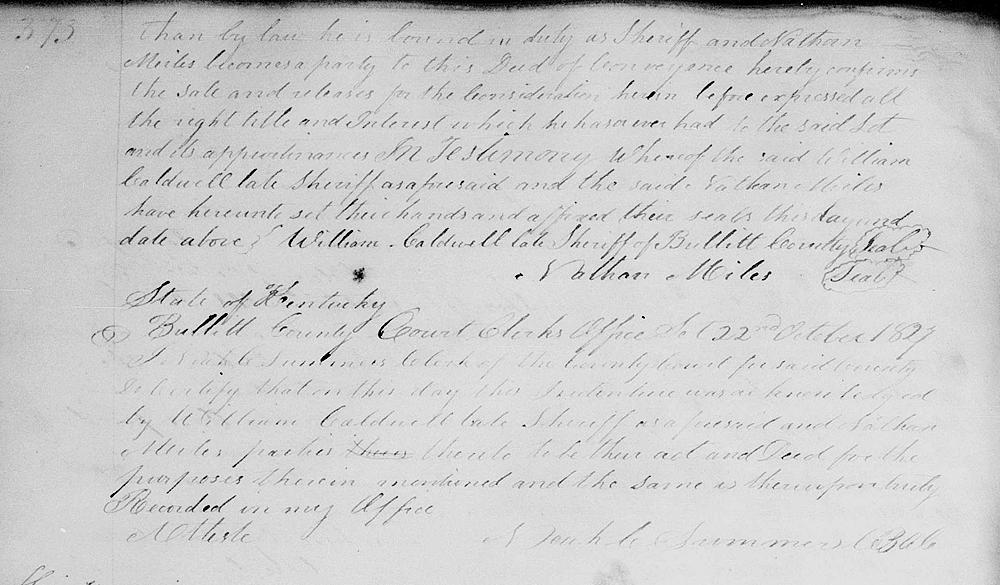 373
than by law he is bound in duty as Sheriff and Nathan
Miles becomes a party to this Deed of Conveyance hereby confirms
the Sale and releases for the Consideration herein before expressed all
the right title and Interest which he has or ever had to the said Lot
and its appurtinances In Testimony Whereof the said William
Caldwell late Sheriff as aforesaid and the said Nathan Miles
have hereunto set their hands and affixed their seals this day and
date above William Caldwell late Sheriff of Bullitt County Seal
Nathan Miles Seal
State of Kentucky
Bullitt County Court Clerks Office Sct 22nd October 1827
I Noah C Summers Clerk of the County Court for said County
Do Certify that on this day this Indenture was acknowledged
by William Caldwell late Sheriff as aforesaid and Nathan
Miles parties thereto to be their act and Deed for the
purposes therein mentioned and the same is thereupon truly
Recorded in my Office
Atteste Noah C Summers CBCC